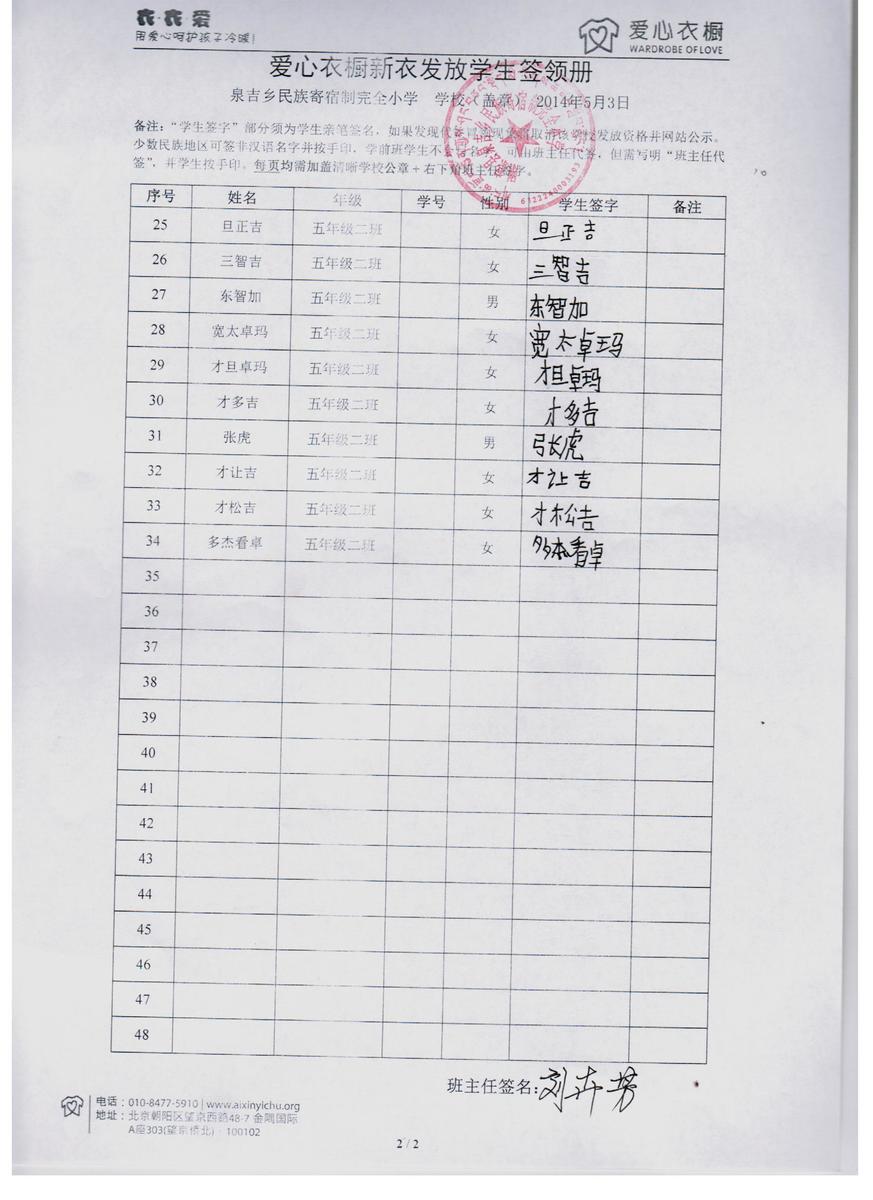 衣·衣·爱
用爱心呵护孩子冷暖!
爱心衣橱
WARDROBE OF LOVE
爱心衣橱新衣发放学生签领册
泉吉乡民族寄宿制完全小学 学校（盖章） 2014年5月3日
备注："学生签字"部分须为学生亲笔签名，如果发现代签冒领现象将取消该学校发放资格并网站公示。
少数民族地区可签非汉语名字并按手印，学前班学生不会写名字，可由班主任代签，但需写明"班主任代
签"，并学生按手印。每页均需加盖清晰学校公章+右下角班主任签字。
6322240003193
序号 姓名 年级 学号 性别 学生签字 备注
25 旦正吉 五年级二班 女 旦正吉
26 三智吉 五年级二班 女 三智吉
27 东智加 五年级二班 男 东智加
28 宽太卓玛 五年级二班 女 宽太卓玛
29 才旦卓玛 五年级二班 女 才旦卓玛
30 才多吉 五年级二班 女 才多吉
31 张虎 五年级二班 男 张虎
32 才让吉 五年级二班 女 才让吉
33 才松吉 五年级二班 女 才松吉
34 多杰看卓 五年级二班 女 多杰看卓
35
36
37
38
39
40
41
42
43
44
45
46
47
48
班主任签名：刘卉芳
电话：010-8477-5910 | www.aixinyichu.org
地址：北京朝阳区望京西路48-7 金隅国际
A座303(望京桥北)·100102
2 / 2